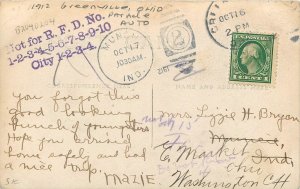 1912 Greenville, Ohio
Not for R.F.D. No.
1-2-3-4-5-6-7-8-9-10
City 1-2-3-4.
MUNCIE
OCT 17
10 30 AM
IND.
2
OCT 16
2 PM
U.S. POSTAGE
1 CENT 1
You forgot this
good looking
bunch of youngsters
Hope you arrived
home safely and had
a nice trip.
MAZIE
Mrs. Lizzie H. Bryan
Muncie, Ind
E. Market St
Ohio
Washington CH